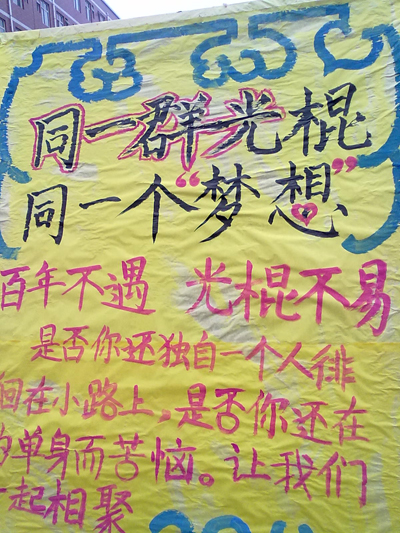 同一群光棍
同一个“梦想”
百年不遇 光棍不易
是否你还独自一个人徘
徊在小路上,是否你还在
的单身而苦恼。让我们
一起相聚